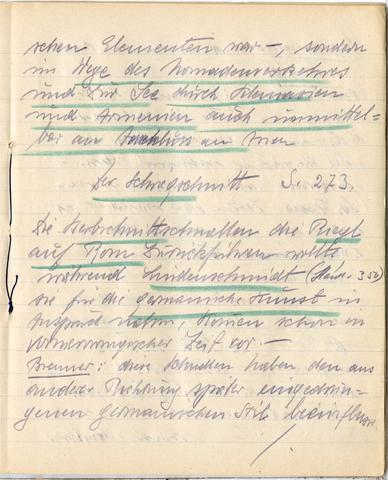 schen Elementen war –, sondern
im Wege des Nomadenverkehres
und zur See durch Kleinasien
und Armenien auch unmittel-
bar am an Iran
Der Schrägschnitt S. 273.
Die Kerbschnittschnallen die Riegl
auf Rom zurückführen wollte
während Lindenschmidt (S. 352)
sie für die germanische Kunst in
Anspruch nahm, kamen schon in
vormerowingischer Zeit vor. –
Brenner: diese Schnallen haben den aus
anderer Richtung später eingedrun-
genen germanischen Stil beeinflusst